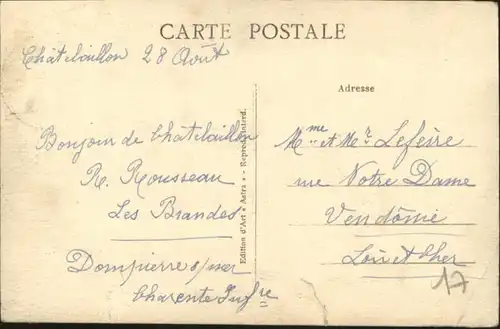 CARTE POSTALE
Châtelaillon 28 Août
Adresse
Bonjour de Chatelaillon
R. Rousseau
Les Brandes
Dompierre s/mer
Charente Infre
Edition d'Art « Astra » - Reprod. interd.
Mme et Mr Lefeire
rue Notre Dame
Vendôme
Loir et Cher
17